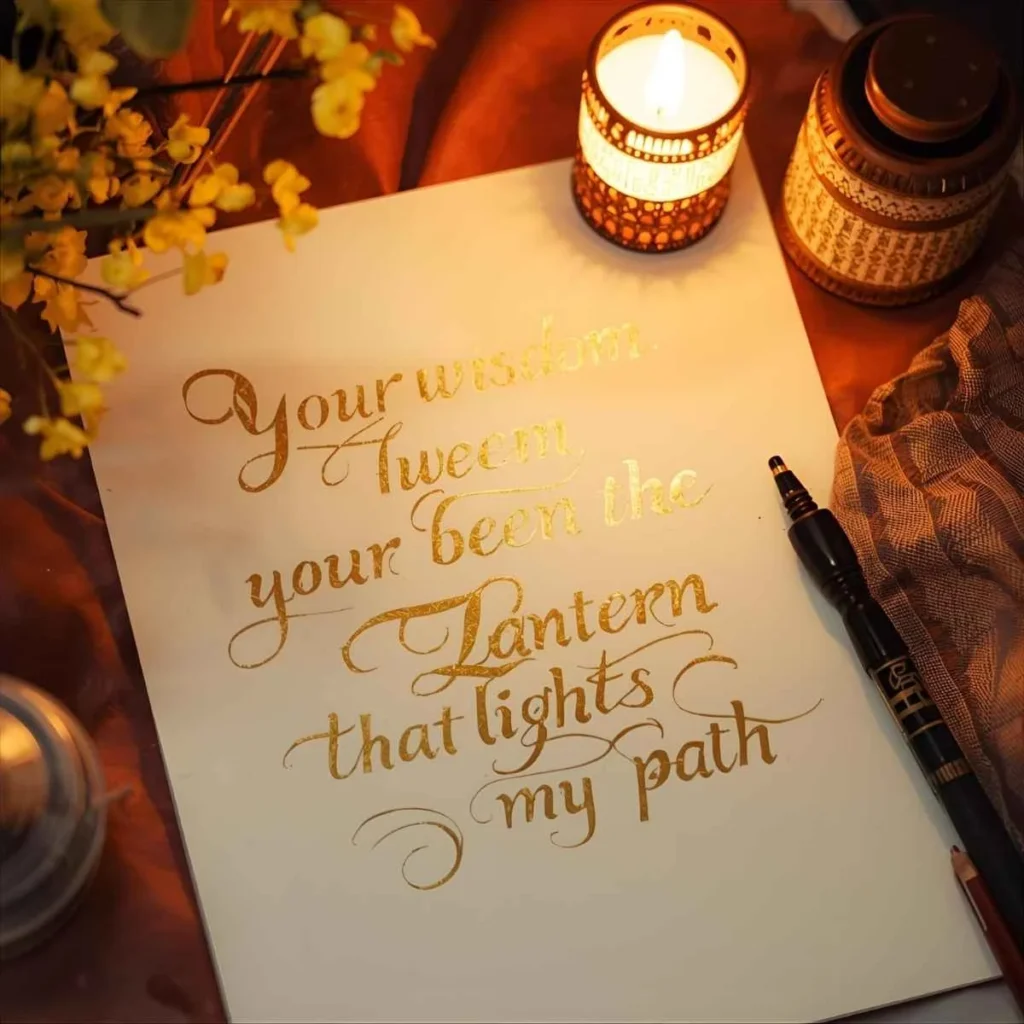 Your wisdom
Iweem
your been the
Lantern
that lights
my path